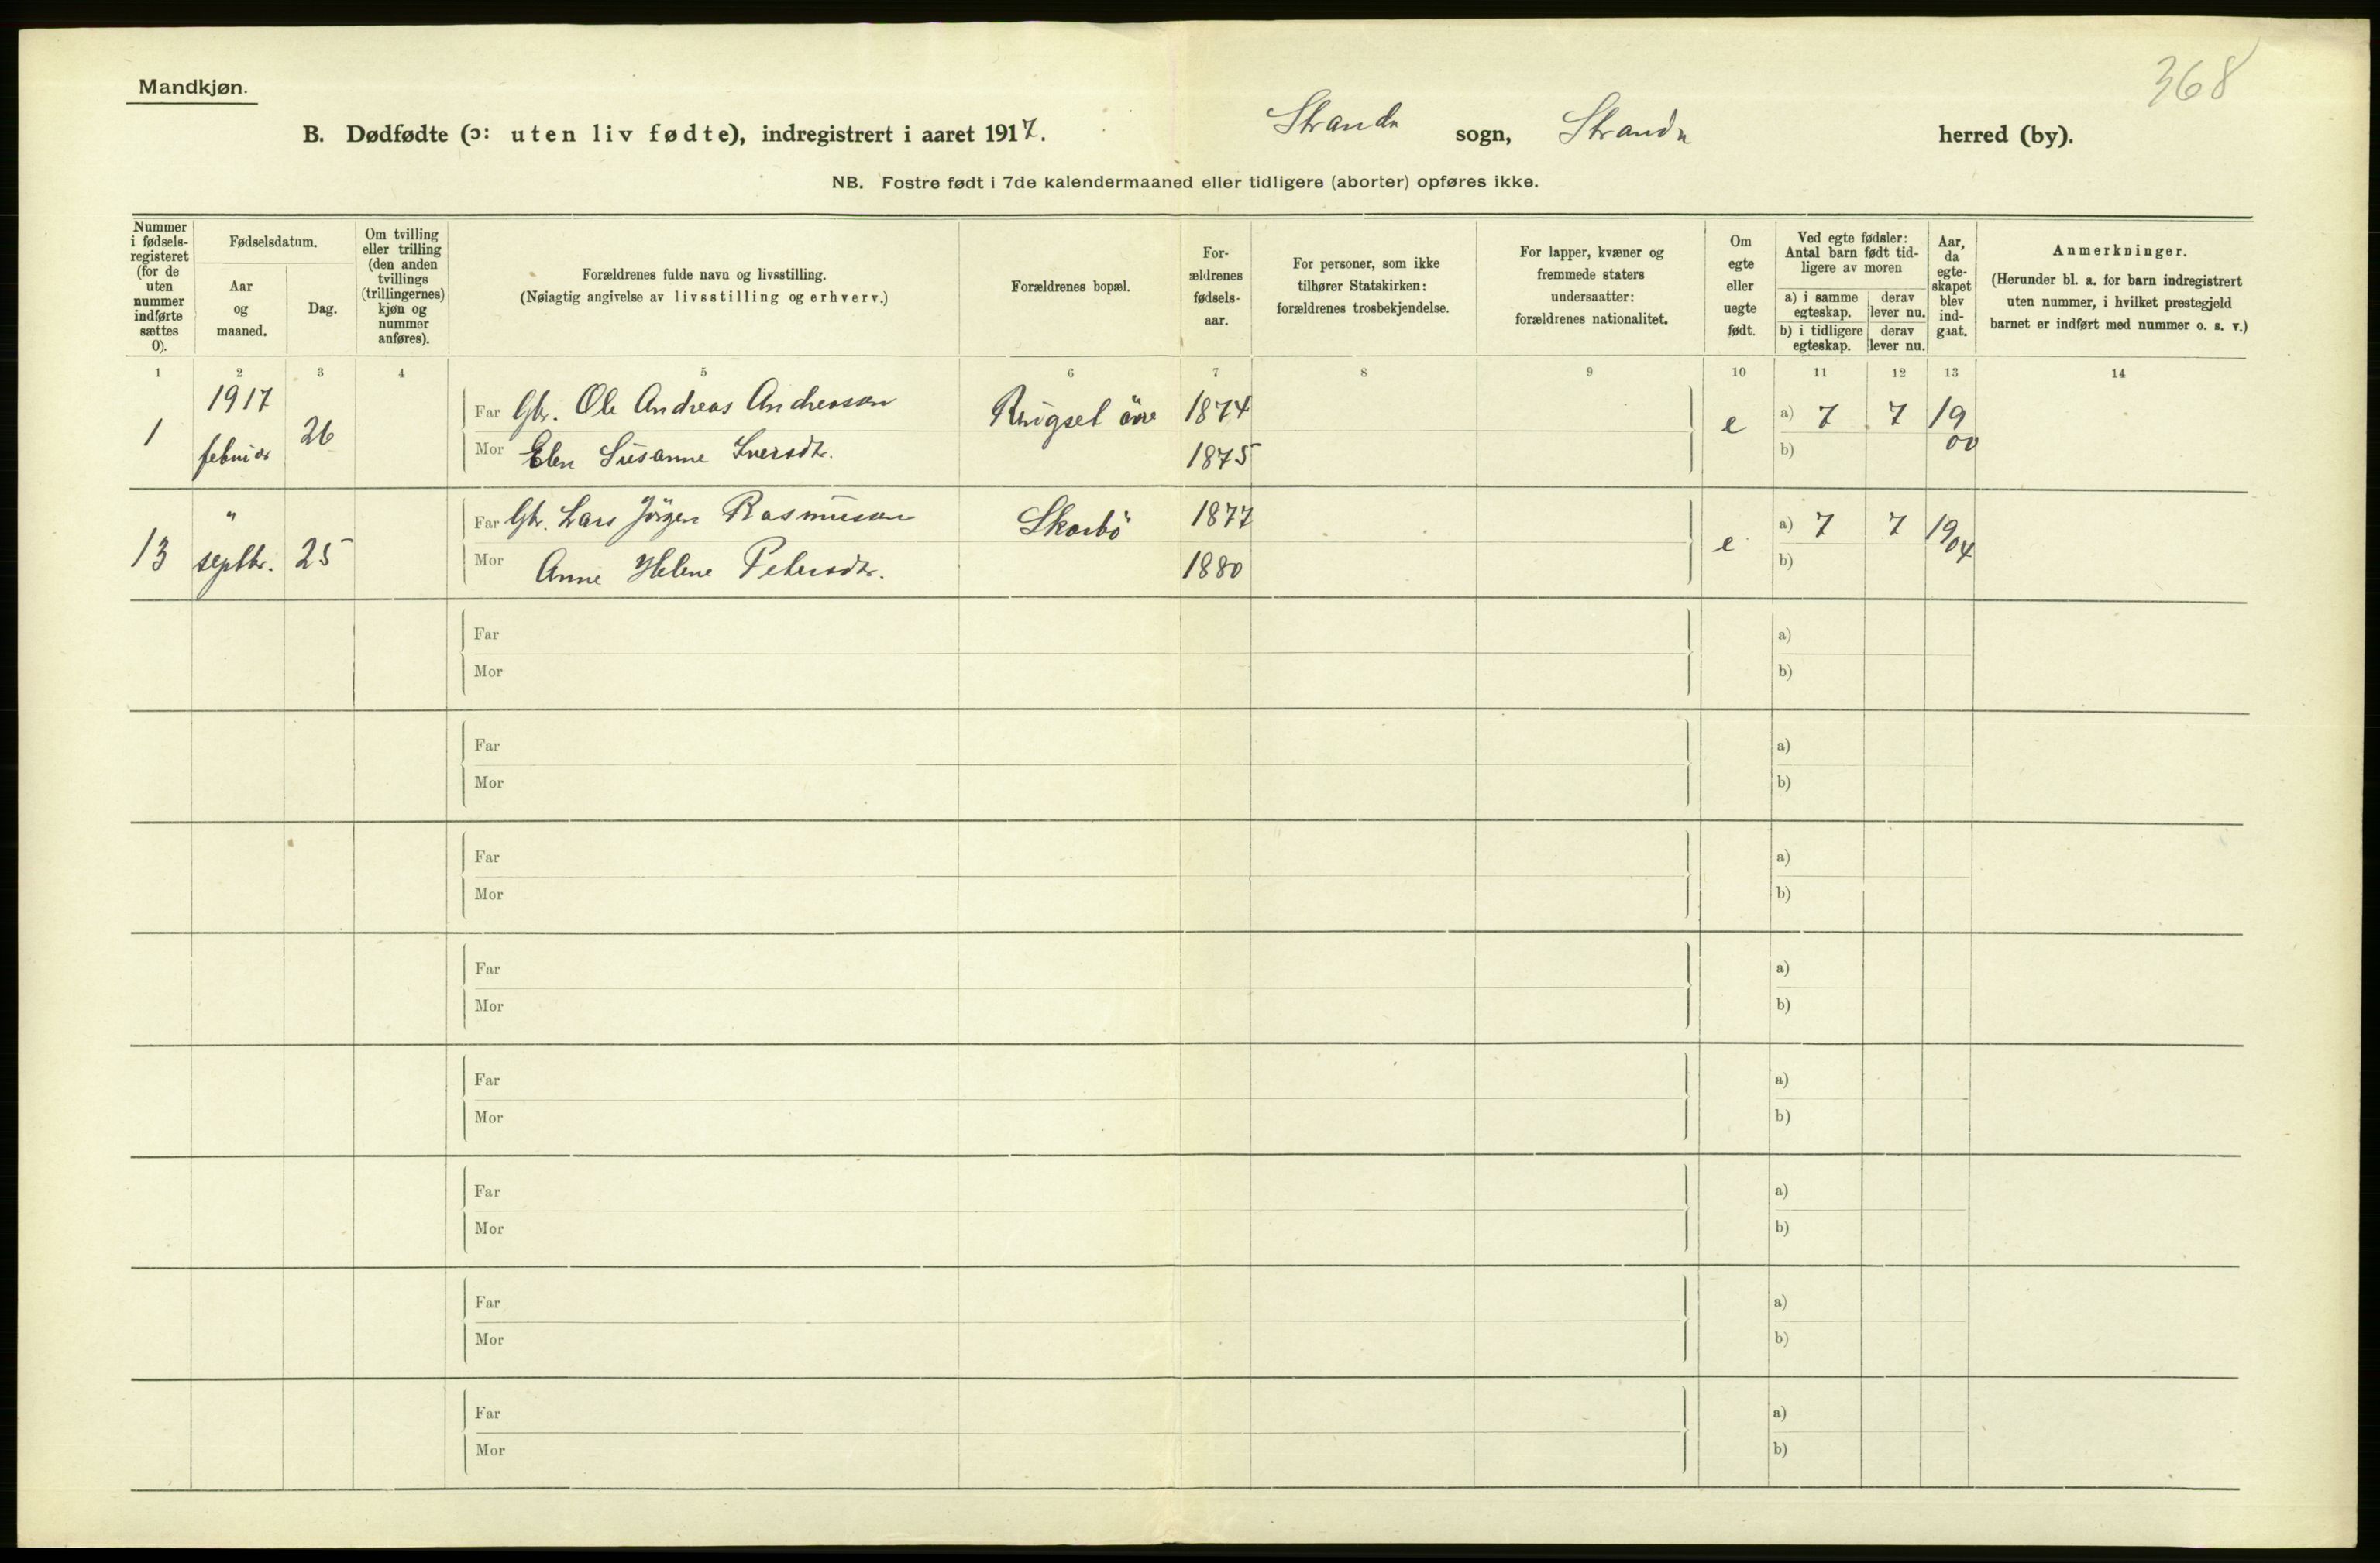 Mandkjøn.
368
B. Dødfødte (ɔ: uten liv fødte), indregistrert i aaret 1917. Stranda sogn, Stranda herred (by).
NB. Fostre født i 7de kalendermaaned eller tidligere (aborter) opføres ikke.
Nummer i fødselsregisteret (for de uten nummer indførte sættes 0).
Fødselsdatum.
Aar og maaned.
Dag.
Om tvilling eller trilling (den anden tvillings (trillingernes) kjøn og nummer anføres).
Forældrenes fulde navn og livsstilling.
(Nøiagtig angivelse av livsstilling og erhverv.)
Forældrenes bopæl.
Forældrenes fødselsaar.
For personer, som ikke tilhører Statskirken: forældrenes trosbekjendelse.
For lapper, kvæner og fremmede staters undersaatter: forældrenes nationalitet.
Om egte eller uegte født.
Ved egte fødsler: Antal barn født tidligere av moren
a) i samme egteskap. derav lever nu.
b) i tidligere egteskap. derav lever nu.
Aar, da egteskapet blev indgaat.
Anmerkninger.
(Herunder bl. a. for barn indregistrert uten nummer, i hvilket prestegjeld barnet er indført med nummer o. s. v.)
1 2 3 4 5 6 7 8 9 10 11 12 13 14
1 1917 februar 26 Far Gbr. Ole Andreas Andreassen Ringset övre 1874 e a) 7 7 1900
Mor Elen Susanne Iversdtr. 1875 b)
13 " septbr. 25 Far Gbr. Lars Jörgen Rasmussen Skarbö 1877 e a) 7 7 1904
Mor Anne Helene Petersdtr. 1880 b)
Far a)
Mor b)
Far a)
Mor b)
Far a)
Mor b)
Far a)
Mor b)
Far a)
Mor b)
Far a)
Mor b)
Far a)
Mor b)
Far a)
Mor b)